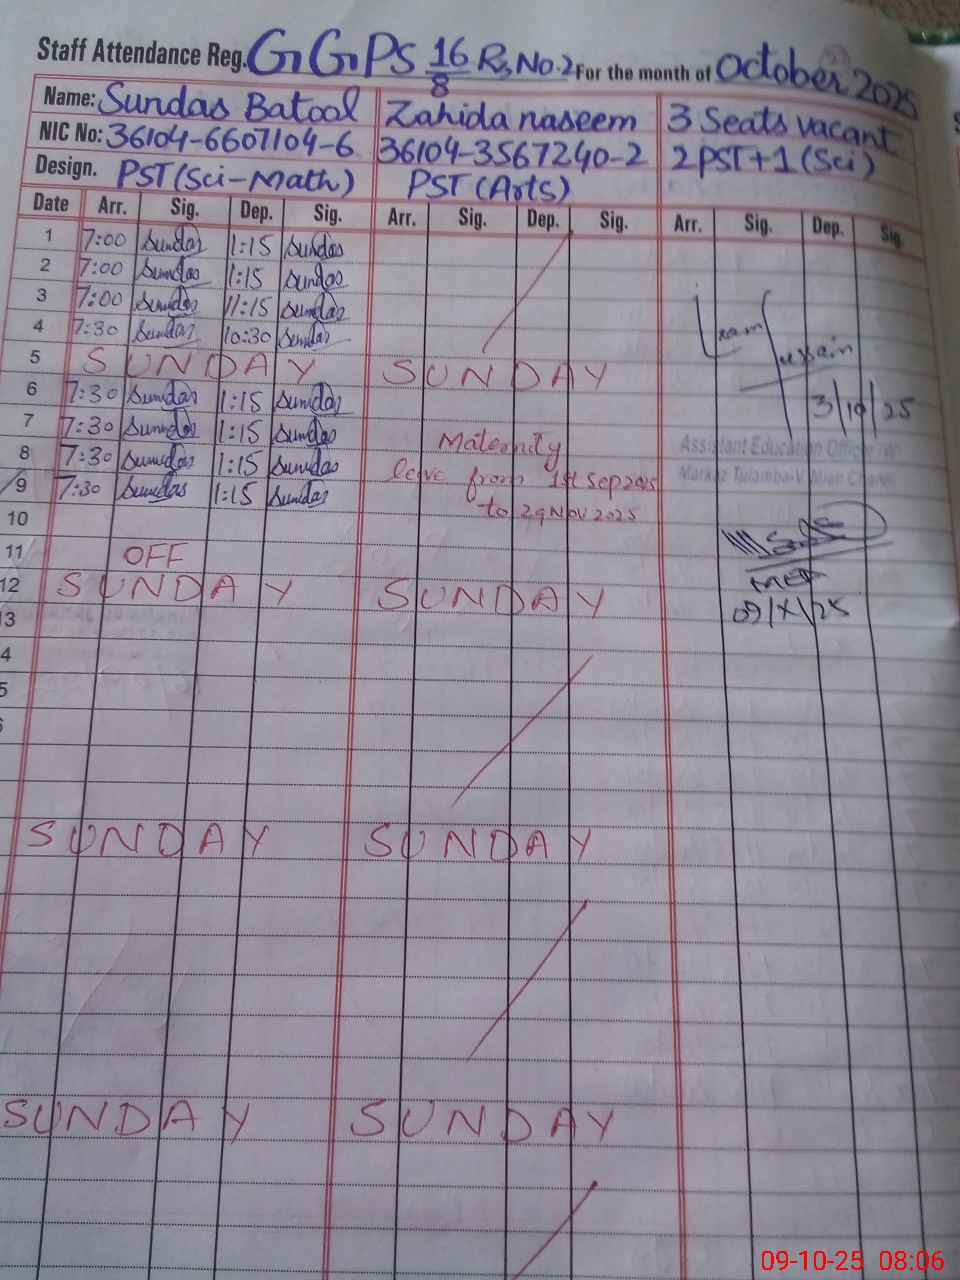 Staff Attendance Reg. GGPS 16/8 Rs No.2 For the month of October 2025
Name: Sundas Batool Zahida naseem 3 Seats vacant
NIC No: 36104-6607104-6 36104-3567240-2 2 PST+1 (Sci)
Design. PST (Sci-Math) PST (Arts)
Date Arr. Sig. Dep. Sig. Arr. Sig. Dep. Sig. Arr. Sig. Dep. Sig.
1 7:00 Sundas 1:15 Sundas
2 7:00 Sundas 1:15 Sundas
3 7:00 Sundas 11:15 Sundas
4 7:30 Sundas 10:30 Sundas
5 SUNDAY SUNDAY
6 7:30 Sundas 1:15 Sundas
3/10/25
7 7:30 Sundas 1:15 Sundas
Maternity
Assistant Education Officer
8 7:30 Sundas 1:15 Sundas
leave from 1st Sep 2025
Markaz Tulamba-V Mian Channu
9 7:30 Sundas 1:15 Sundas
to 29 Nov 2025
10
11 OFF
12 SUNDAY SUNDAY
09/X/25
13
4
5
6
SUNDAY SUNDAY
SUNDAY SUNDAY
09-10-25 08:06